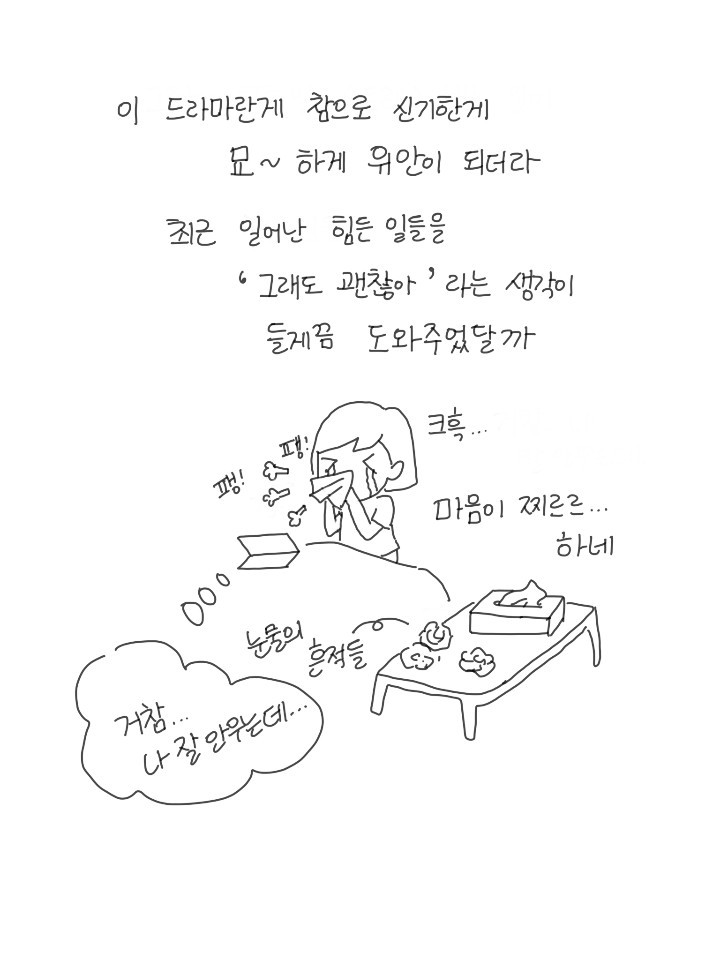 이 드라마란게 참으로 신기한게
묘~ 하게 위안이 되더라
최근 일어난 힘든 일들을
‘그래도 괜찮아’라는 생각이
들게끔 도와주었달까
크흑...
팽!
팽!
마음이 찌르르...
하네
눈물의
흔적들
거참...
나 잘 안우는데...